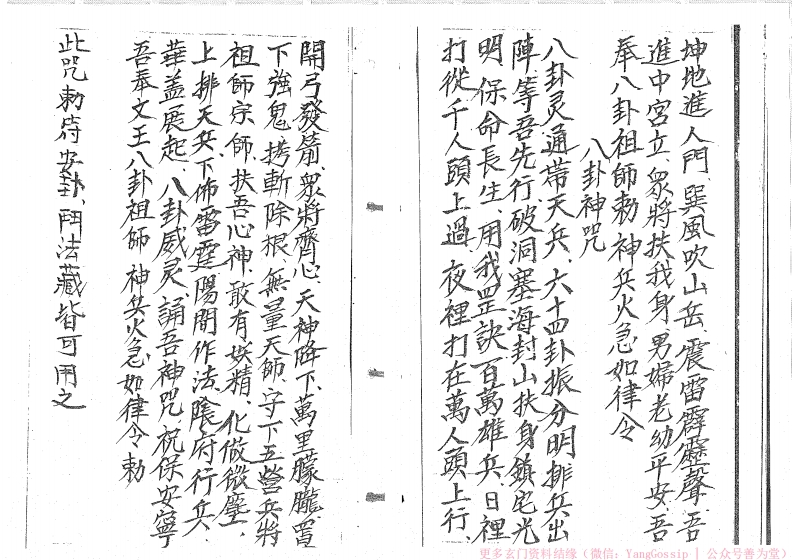 坤地進人門、巽風吹山岳、震雷霹靂聲、吾
進中宮立、眾將扶我身、男婦老幼平安、吾
奉八卦祖師勅 神兵火急如律令
八卦神咒
八卦灵通帶天兵、六十四卦振分明、排兵出
陣等吾先行、破洞塞海封山、扶身鎮宅光
明、保命長生、用我罡訣、百萬雄兵、日裡
打從千人頭上過、夜裡打在萬人頭上行、
開弓發箭、眾將齊心、天神降下、萬里朦朧、冒
下強鬼、拷斬除根、無量天師、守下五營兵將
祖師宗師、扶吾心神、敢有妖精、化做微塵、
上排天兵、下佈雷霆、陽間作法、陰府行兵、
華盖展起、八卦威灵、誦吾神咒、祝保安寧
吾奉文王八卦祖師 神兵火急如律令 勅
此咒勅符安卦、鬥法藏皆可用之
更多玄门资料结缘（微信：YangGossip | 公众号善为堂）